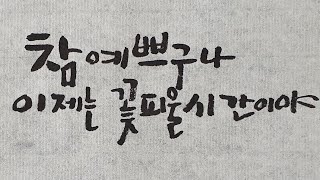 참 예쁘구나
이제는 꽃피울시간이야